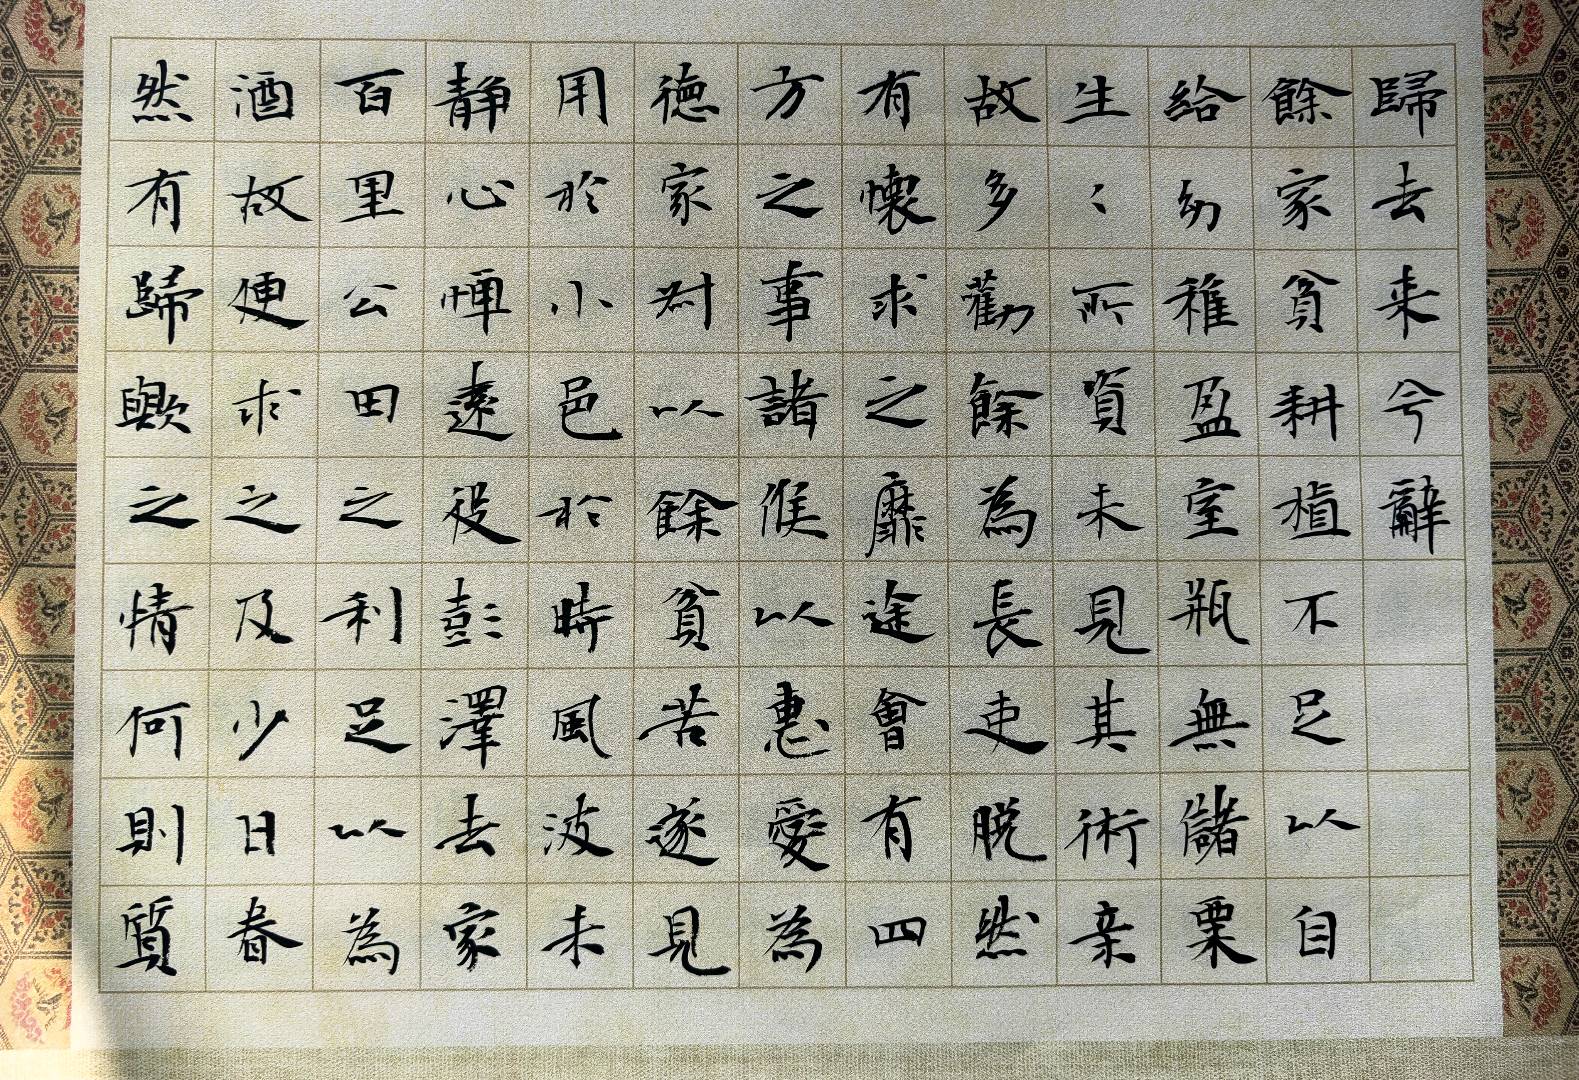 歸去来兮辭
餘家貧耕植不足以自
給幼稚盈室瓶無儲粟
生〻所資未見其術亲
故多勸餘為長吏脱然
有懷求之靡途會有四
方之事諸侯以惠愛為
德家叔以餘貧苦遂見
用於小邑於時風波未
静心惮遠役彭澤去家
百里公田之利足以為
酒故便求之及少日眷
然有歸歟之情何則質